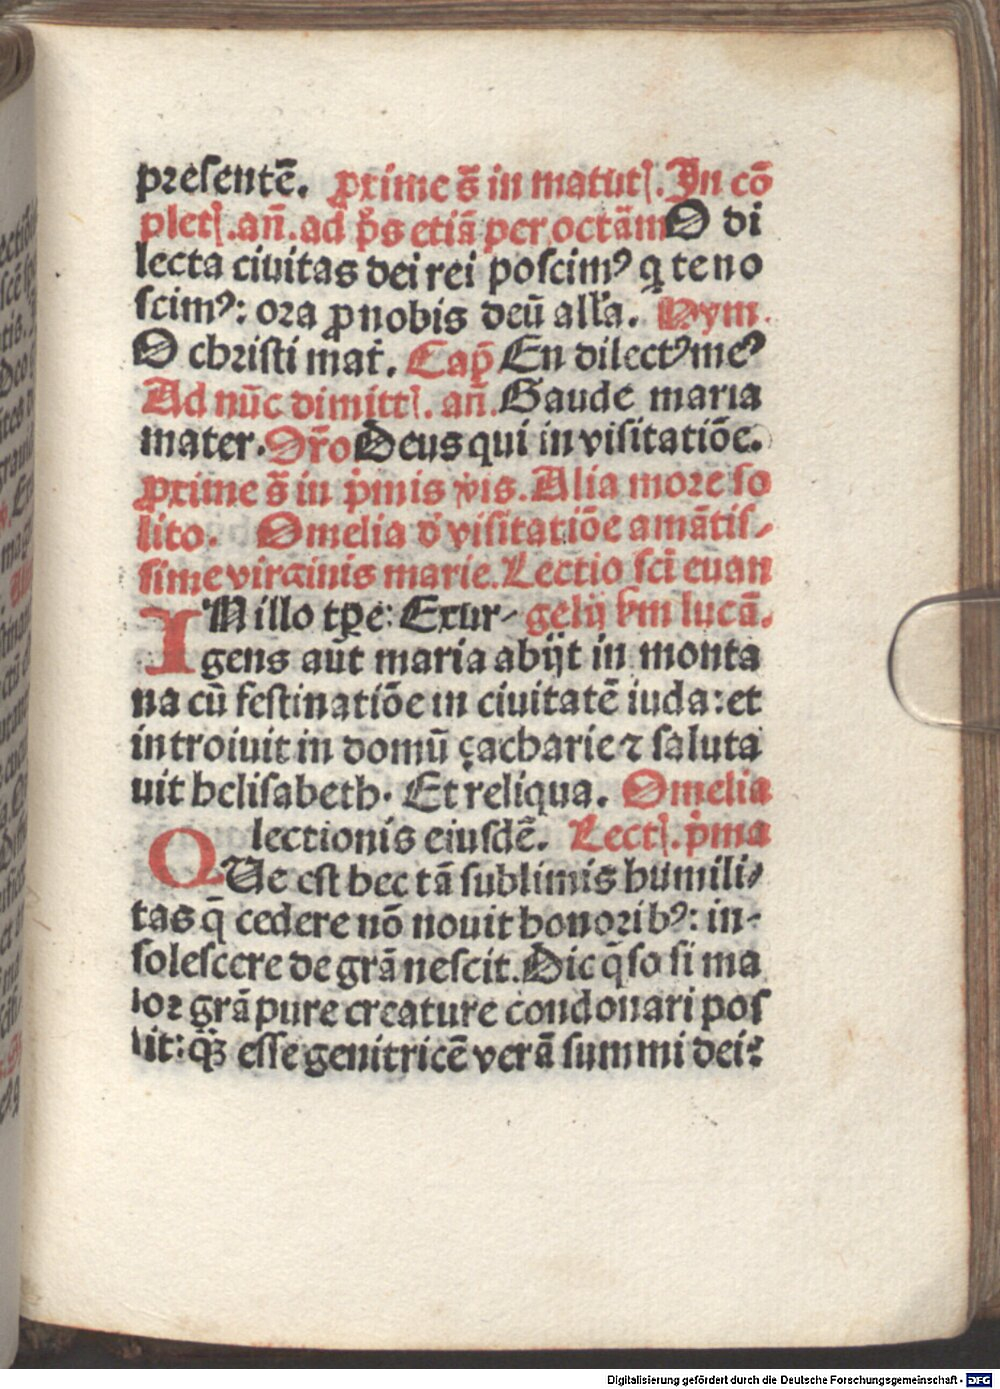 presentē. ꝓxime s̄ in matutꝭ. In cō
pletꝭ. añ. ad p̄s etiā per octāmO di
lecta ciuitas dei rei poscimꝰ q te no
scimꝰ: ora ꝓ nobis deū alła. Nym.
O christi mat̄. Cap̄ En dilectꝰ meꝰ
Ad nūc dimittꝭ. añ. Gaude maria
mater. Or̄o Deus qui in visitatiōe.
ꝓxime s̄ in p̄mis vīs. Alia more so
lito. Omelia d̄ visitatiōe amātis⸗
sime virginis marie. Lectio sc̄i euan
IN illo tꝑe: Exur⸗ gelij ẜm lucā.
gens aūt maria abijt in monta
na cū festinatiōe in ciuitatē iuda: et
introiuit in domū çacharie ⁊ saluta
uit helisabeth. Et reliqua. Omelia
lectionis eiusdē. Lectꝭ. p̄ma
QUe est hec tā sublimis humili⸗
tas q̄ cedere nō nouit honoribꝰ: in⸗
solescere de grā nescit. Dic q̄so si ma
ior grā pure creature condonari pos
sit: q̄ꝫ esse genitricē verā summi dei:
Digitalisierung gefördert durch die Deutsche Forschungsgemeinschaft - DFG